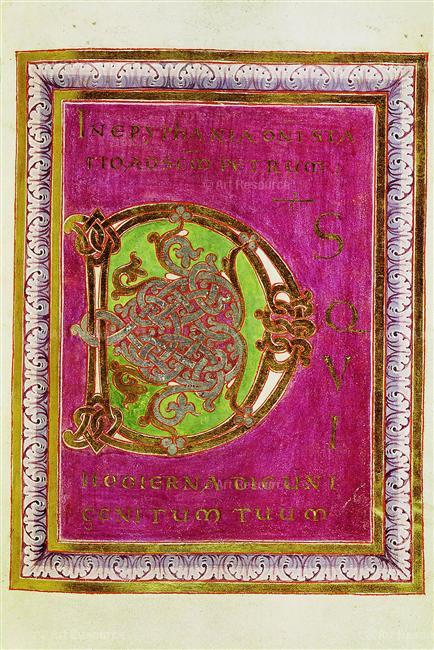 IN EPYPHANIA DNI STA
TIO AD SCM PETRUM.
D̅S
Q
V
I
HODIERNA DIE UNI
GENITUM TUUM
© Art Resource